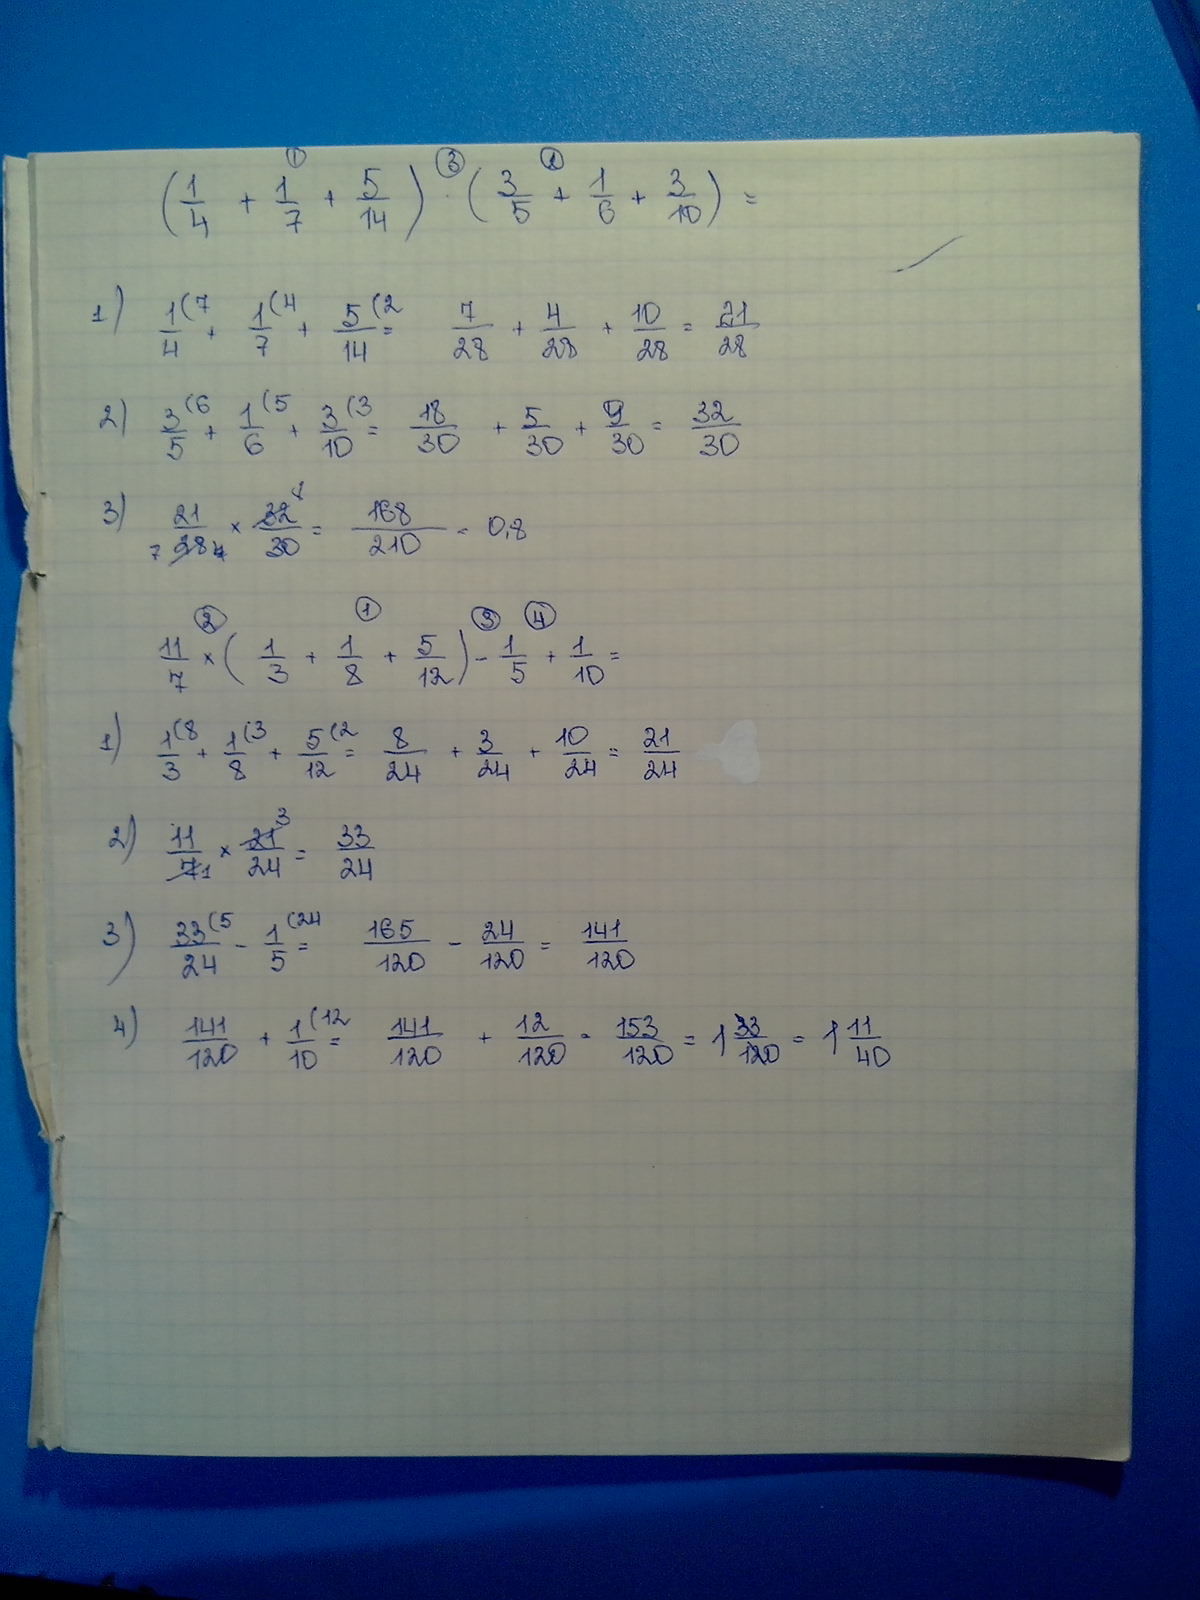 (1/4 + 1/7 + 5/14) · (3/5 + 1/6 + 3/10) =
1) 1/4 (7 + 1/7 (4 + 5/14 (2 = 7/28 + 4/28 + 10/28 = 21/28
2) 3/5 (6 + 1/6 (5 + 3/10 (3 = 18/30 + 5/30 + 9/30 = 32/30
3) 21/28 × 32/30 = 168/210 = 0,8
11/7 × (1/3 + 1/8 + 5/12) - 1/5 + 1/10 =
1) 1/3 (8 + 1/8 (3 + 5/12 (2 = 8/24 + 3/24 + 10/24 = 21/24
2) 11/7 1 × 21 3/24 = 33/24
3) 33/24 (5 - 1/5 (24 = 165/120 - 24/120 = 141/120
4) 141/120 + 1/10 (12 = 141/120 + 12/120 = 153/120 = 1 33/120 = 1 11/40